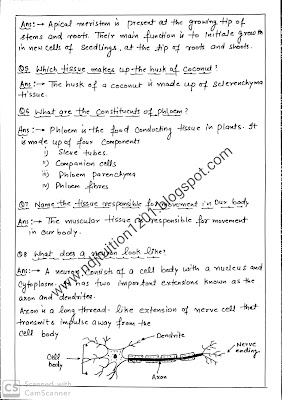 Ans:→ Apical meristem is present at the growing tip of
stems and roots. Their main function is to initiate growth
in new cells of seedlings, at the tip of roots and shoots.
Q5 Which tissue makes up the husk of coconut?
Ans:→ The husk of a coconut is made up of Sclerenchyma
tissue.
Q6 What are the Constituents of phloem?
Ans:→ Phloem is the food Conducting tissue in plants. It
is made up of four Components
i) Sieve tubes.
ii) Companion cells
iii) Phloem parenchyma
iv) Phloem fibres
Q7 Name the tissue responsible for movement in Our body.
Ans:→ The muscular tissue is responsible for movement
in our body.
Q8 What does a neuron look like?
Ans:→ A neuron Consists of a cell body with a nucleus and
Cytoplasm. It has two important extensions known as the
axon and dendrites.
Axon is a long thread-like extension of nerve cell that
transmits impulse away from the
Cell body
Dendrite
Nerve
ending
Cell
body
Axon
CS Scanned with
CamScanner